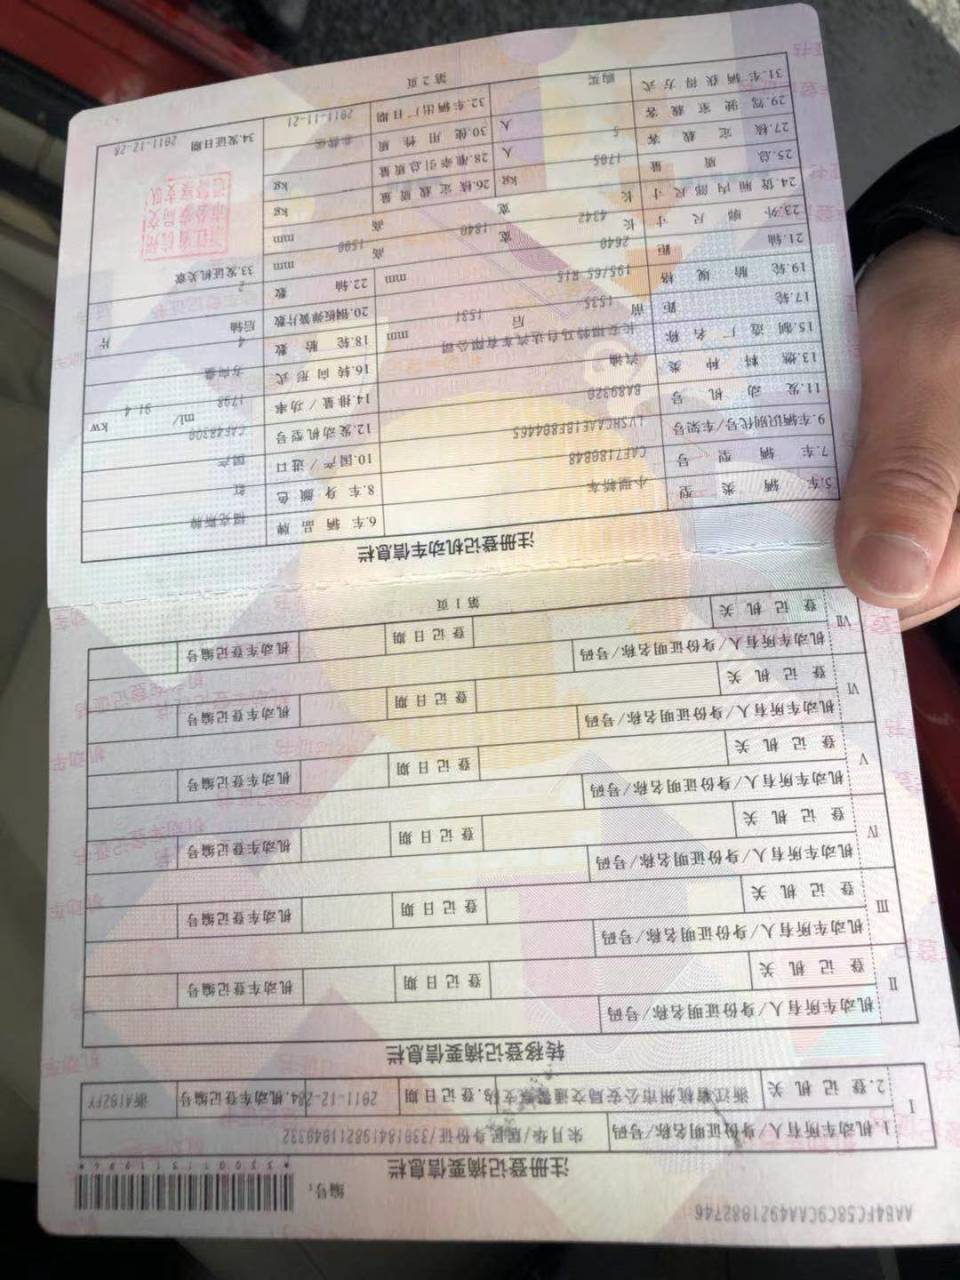 编号：
注册登记摘要信息栏
I
1.机动车所有人/身份证明名称/号码
2.登记机关
浙江省杭州市公安局交通警察支
3.登记日期
4.机动车登记编号
转移登记摘要信息栏
II
机动车所有人/身份证明名称/号码
登记机关
登记日期
机动车登记编号
III
机动车所有人/身份证明名称/号码
登记机关
登记日期
机动车登记编号
IV
机动车所有人/身份证明名称/号码
登记机关
登记日期
机动车登记编号
V
机动车所有人/身份证明名称/号码
登记机关
登记日期
机动车登记编号
VI
机动车所有人/身份证明名称/号码
登记机关
登记日期
机动车登记编号
VII
机动车所有人/身份证明名称/号码
登记机关
登记日期
机动车登记编号
第1页
注册登记机动车信息栏
5.车辆类型 小型轿车 6.车辆品牌 福克斯牌
7.车辆型号 CAF7180B48 8.车身颜色 红
9.车辆识别代号/车架号 10.国产/进口 国产
11.发动机号 BA89320 12.发动机型号
13.燃料种类 汽油 14.排量/功率 1798 ml/ 91.4 kw
15.制造厂名称 长安福特马自达汽车有限公司 16.转向形式 方向盘
17.轮距 前 1535 后 1531 mm 18.轮胎数 4
19.轮胎规格 195/65 R15 20.钢板弹簧片数 后轴 片
21.轴距 2640 mm 22.轴数 2
23.外廓尺寸 长 4342 宽 1840 高 1500 mm
24.货厢内部尺寸 长 宽 高 mm
25.总质量 1705 kg 26.核定载质量 kg
27.核定载客 5 人 28.准牵引总质量 kg
29.驾驶室载客 人 30.使用性质 非营运
31.车辆获得方式 购买 32.车辆出厂日期 2011-11-21
33.发证机关章
34.发证日期 2011-12-28
第2页